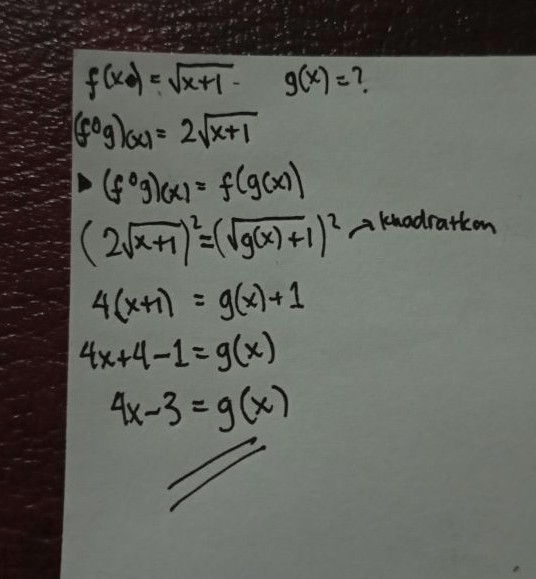 f(x) = √x+1. g(x) = ?
(fog)(x) = 2√x+1
▶ (fog)(x) = f(g(x))
(2√x+1)² = (√g(x)+1)² → kuadratkan
4(x+1) = g(x)+1
4x+4-1 = g(x)
4x-3 = g(x)